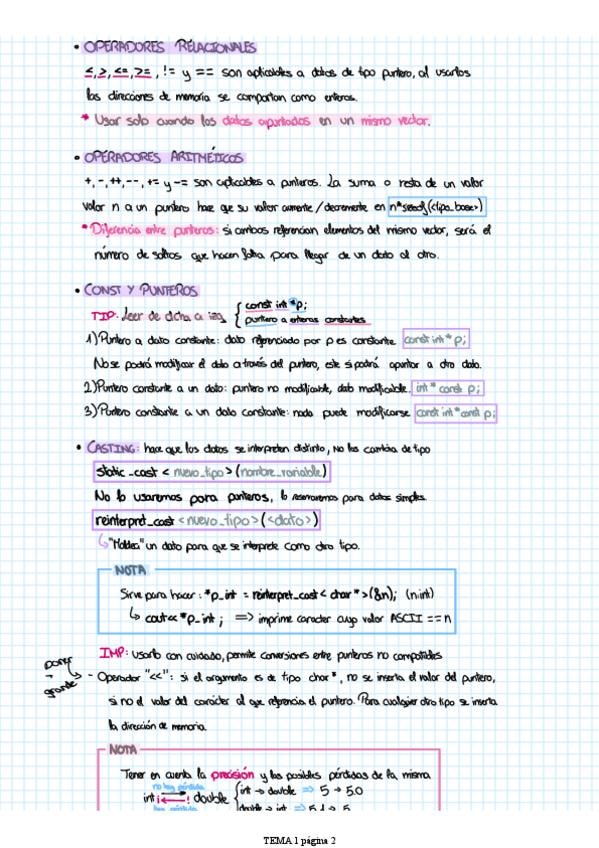 • OPERADORES RELACIONALES
<, >, <=, >=, != y == son aplicables a datos de tipo puntero, al usarlos
las direcciones de memoria se comportan como enteros.
* Usar solo cuando los datos apuntados en un mismo vector.
• OPERADORES ARITMÉTICOS
+, -, ++, --, += y -= son aplicables a punteros. La suma o resta de un valor
valor n a un puntero hace que su valor aumente/decremente en n*sizeof(<tipo_base>)
* Diferencia entre punteros: si ambos referencian elementos del mismo vector, será el
número de saltos que hacen falta para llegar de un dato al otro.
• CONST Y PUNTEROS
TIP: Leer de dcha a izq { const int *p;
puntero a enteros constantes
1) Puntero a dato constante: dato referenciado por p es constante const int * p;
No se podrá modificar el dato a través del puntero, este si podrá apuntar a otro dato.
2) Puntero constante a un dato: puntero no modificable, dato modificable. int * const p;
3) Puntero constante a un dato constante: nada puede modificarse const int * const p;
• CASTING: hace que los datos se interpreten distinto, no les cambia de tipo
static_cast < nuevo_tipo > (nombre_variable)
No lo usaremos para punteros, lo reservaremos para datos simples.
reinterpret_cast <nuevo_tipo> (<dato>)
↳ "Moldea" un dato para que se interprete como otro tipo.
NOTA
Sirve para hacer: *p_int = reinterpret_cast < char * > (&n); (n:int)
↳ cout << *p_int ; => imprime caracter cuyo valor ASCII == n
IMP: usarlo con cuidado, permite conversiones entre punteros no compatibles
poner + grande
- Operador "<<": si el argumento es de tipo char*, no se inserta el valor del puntero,
si no el valor del carácter al que referencia el puntero. Para cualquier otro tipo se inserta
la dirección de memoria.
NOTA
Tener en cuenta la precisión y las posibles pérdidas de la misma
no hay pérdida
int double { int → double => 5 → 5.0
hay pérdida double → int => 5.1 → 5
TEMA 1 página 2